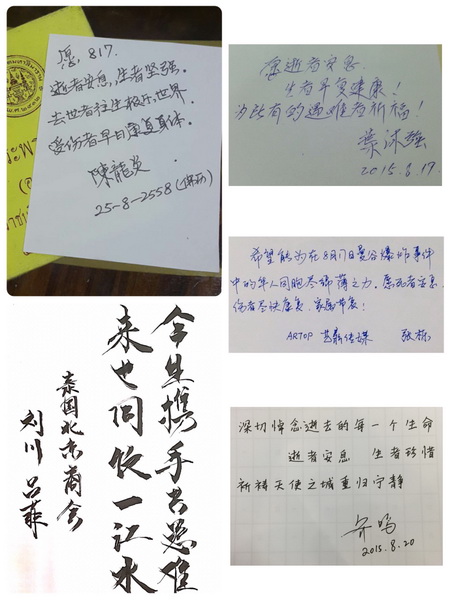 愿 817.
逝者安息,生者坚强。
去世者往生极乐世界.
受伤者早日康复身体.
陳龍英
25-8-2558(佛历)
愿逝者安息.
生者早复健康!
为所有的遇难者祈福!
葉沐強
2015.8.17.
希望能为在8月17日曼谷爆炸事件
中的华人同胞尽绵薄之力。愿死者安息
伤者尽快康复,家属节哀!
ARTOP 艺鼎传媒 张
深切悼念逝去的每一个生命
逝者安息 生者珍惜
祈祷天使之城重归宁静
2015.8.20
今生携手共患难
来世同饮一江水
泰国北京商会
刘川 吕菲